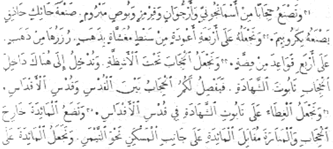 ٣١وَتَصْنَعُ حِجَابًا مِنْ أَسْمَانْجُونِيٍّ وَأُرْجُوَانٍ وَقِرْمِزٍ وَبُوصٍ مَبْرُومٍ. صَنْعَةَ حَائِكٍ حَاذِقٍ
يَصْنَعُهُ بِكَرُوبِيمَ. ٣٢وَتَجْعَلُهُ عَلَى أَرْبَعَةِ أَعْمِدَةٍ مِنْ سَنْطٍ مُغَشَّاةٍ بِذَهَبٍ. رُزَزُهَا مِنْ ذَهَبٍ.
عَلَى أَرْبَعِ قَوَاعِدَ مِنْ فِضَّةٍ. ٣٣وَتَجْعَلُ الْحِجَابَ تَحْتَ الأَشِظَّةِ. وَتُدْخِلُ إِلَى هُنَاكَ دَاخِلَ
الْحِجَابِ تَابُوتَ الشَّهَادَةِ. فَيَفْصِلُ لَكُمُ الْحِجَابُ بَيْنَ الْقُدْسِ وَقُدْسِ الأَقْدَاسِ.
٣٤وَتَجْعَلُ الْغِطَاءَ عَلَى تَابُوتِ الشَّهَادَةِ فِي قُدْسِ الأَقْدَاسِ. ٣٥وَتَضَعُ الْمَائِدَةَ خَارِجَ
الْحِجَابِ وَالْمَنَارَةَ مُقَابِلَ الْمَائِدَةِ عَلَى جَانِبِ الْمَسْكَنِ نَحْوَ التَّيْمَنِ. وَتَجْعَلُ الْمَائِدَةَ عَلَى